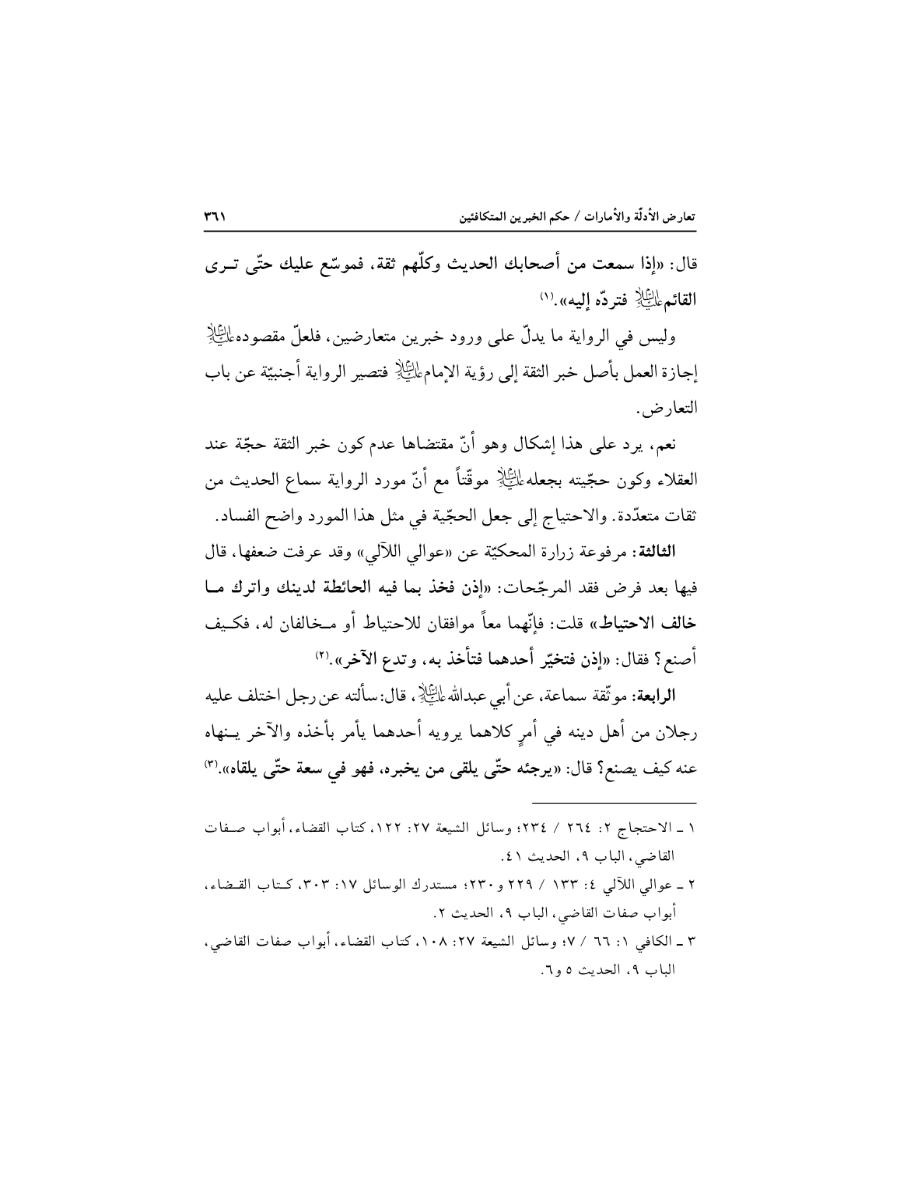 تعارض الأدلّة والأمارات / حكم الخبرين المتكافئين ٣٦١
قال: «إذا سمعت من أصحابك الحديث وكلّهم ثقة، فموسّع عليك حتّى تـرى
القائم عليه السلام فتردّه إليه».(١)
وليس في الرواية ما يدلّ على ورود خبرين متعارضين، فلعلّ مقصوده عليه السلام
إجازة العمل بأصل خبر الثقة إلى رؤية الإمام عليه السلام فتصير الرواية أجنبيّة عن باب
التعارض.
نعم، يرد على هذا إشكال وهو أنّ مقتضاها عدم كون خبر الثقة حجّة عند
العقلاء وكون حجّيته بجعله عليه السلام موقّتاً مع أنّ مورد الرواية سماع الحديث من
ثقات متعدّدة. والاحتياج إلى جعل الحجّية في مثل هذا المورد واضح الفساد.
الثالثة: مرفوعة زرارة المحكيّة عن «عوالي اللآلي» وقد عرفت ضعفها، قال
فيها بعد فرض فقد المرجّحات: «إذن فخذ بما فيه الحائطة لدينك واترك مـا
خالف الاحتياط» قلت: فإنّهما معاً موافقان للاحتياط أو مـخالفان له، فكـيف
أصنع؟ فقال: «إذن فتخيّر أحدهما فتأخذ به، وتدع الآخر».(٢)
الرابعة: موثّقة سماعة، عن أبي عبدالله عليه السلام، قال: سألته عن رجل اختلف عليه
رجلان من أهل دينه في أمرٍ كلاهما يرويه أحدهما يأمر بأخذه والآخر يـنهاه
عنه كيف يصنع؟ قال: «يرجئه حتّى يلقى من يخبره، فهو في سعة حتّى يلقاه».(٣)
١ ـ الاحتجاج ٢: ٢٦٤ / ٢٣٤؛ وسائل الشيعة ٢٧: ١٢٢، كتاب القضاء، أبواب صـفات
القاضي، الباب ٩، الحديث ٤١.
٢ ـ عوالي اللآلي ٤: ١٣٣ / ٢٢٩ و ٢٣٠؛ مستدرك الوسائل ١٧: ٣٠٣، كـتاب القـضاء،
أبواب صفات القاضي، الباب ٩، الحديث ٢.
٣ ـ الكافي ١: ٦٦ / ٧؛ وسائل الشيعة ٢٧: ١٠٨، كتاب القضاء، أبواب صفات القاضي،
الباب ٩، الحديث ٥ و٦.